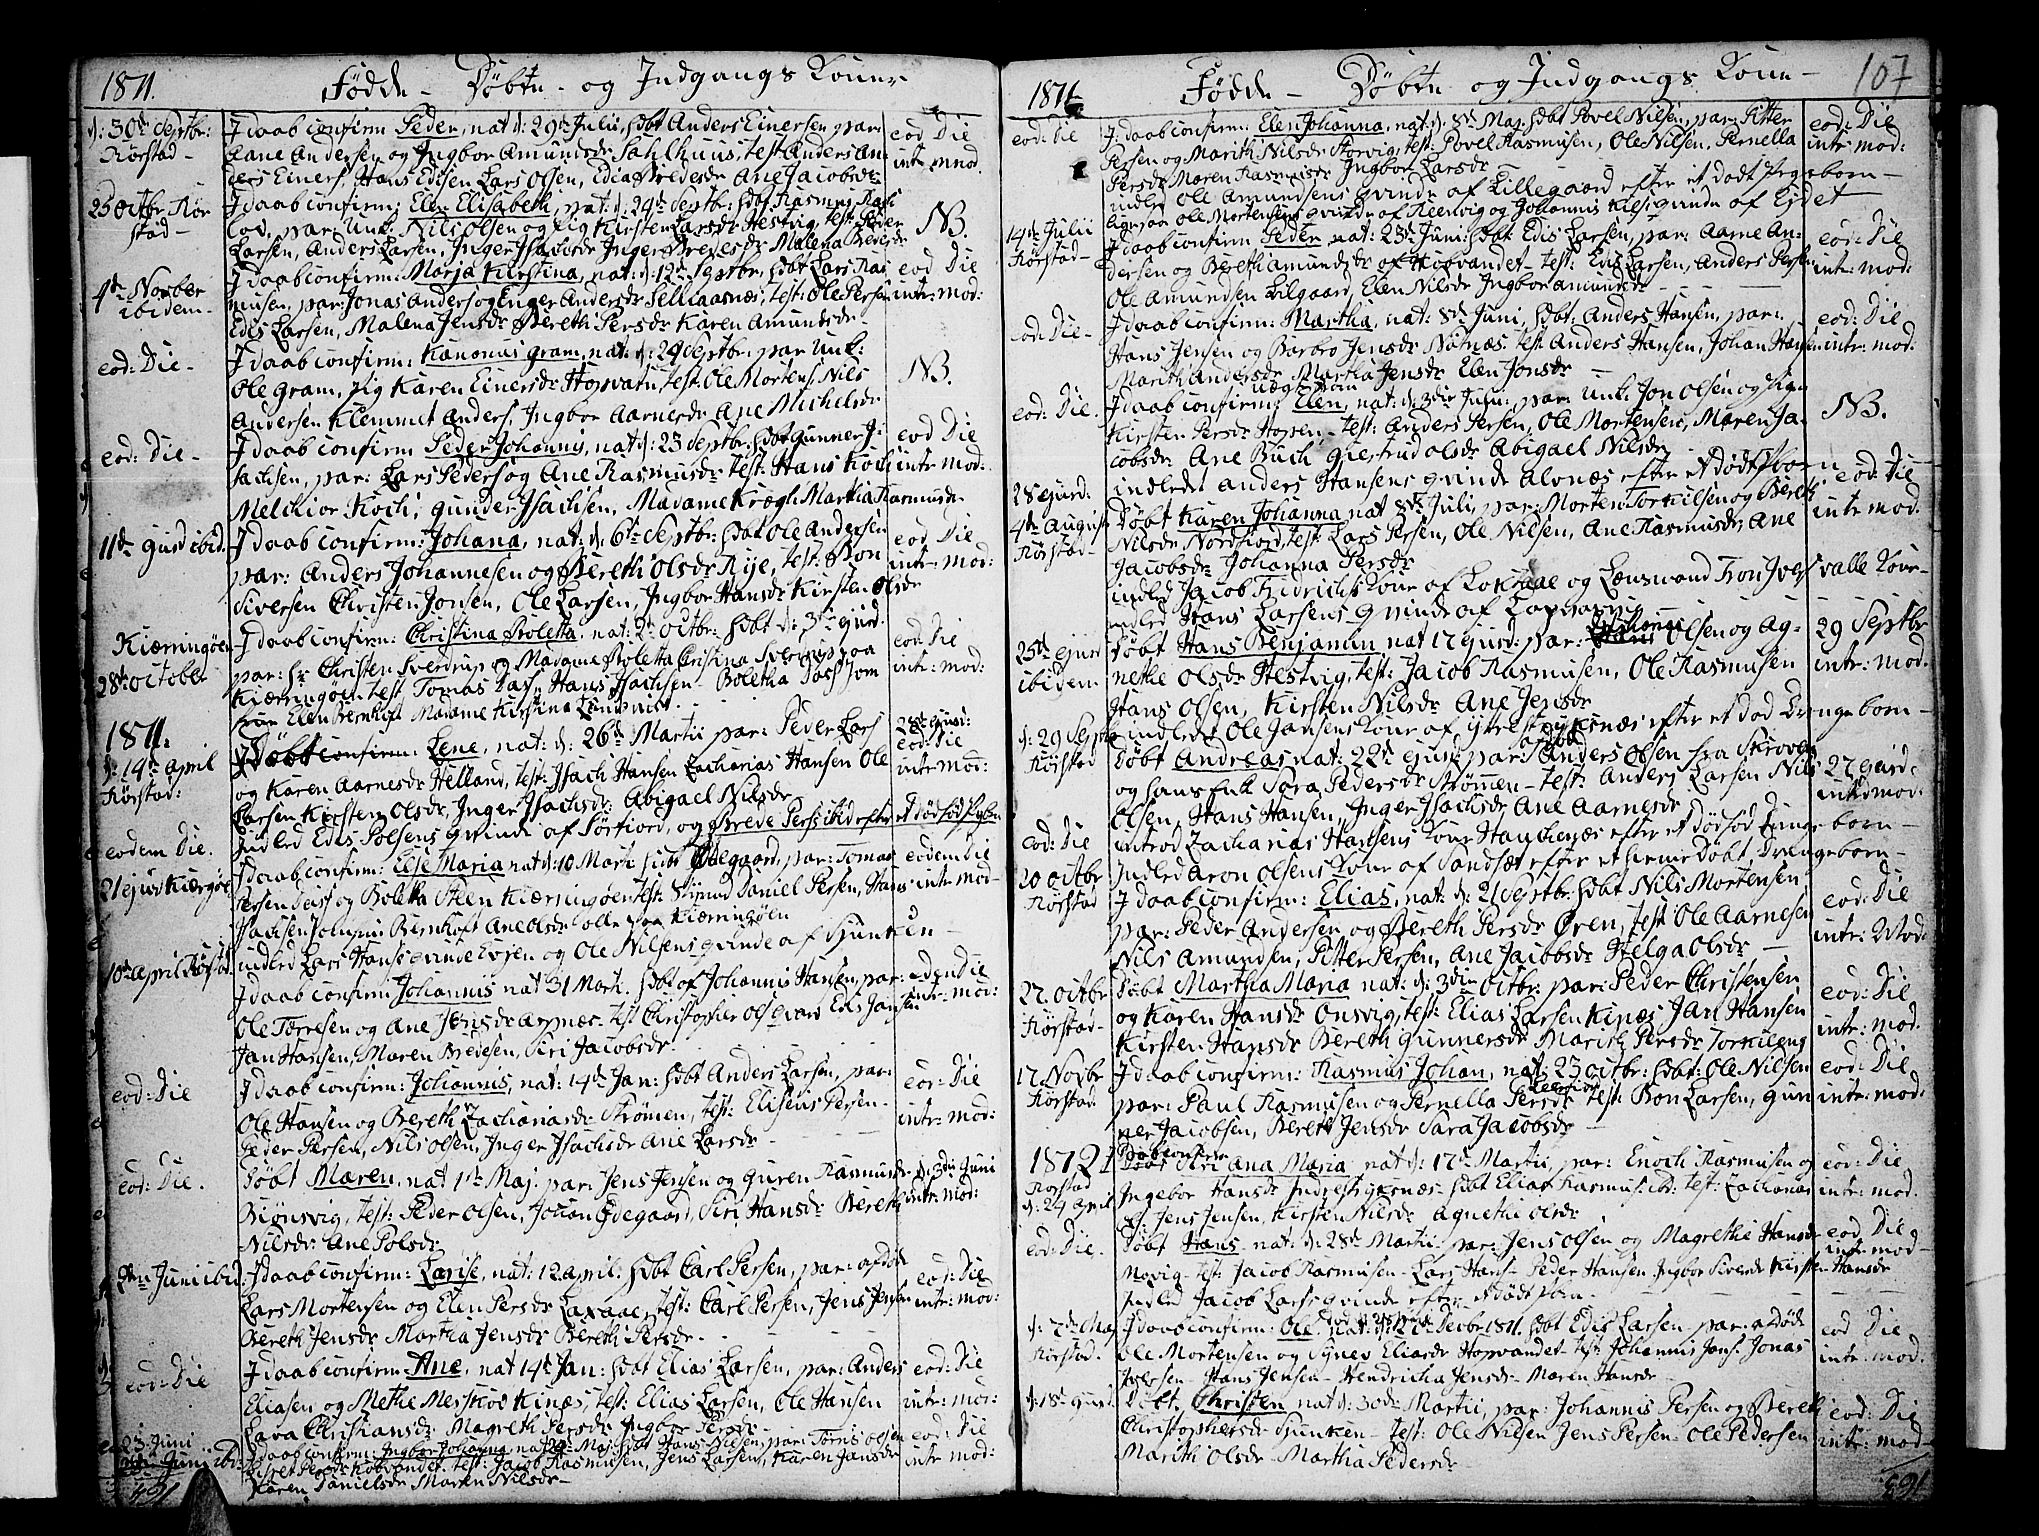 1811.
Fødde - Døbte - og Indgangs Koner
d: 30te Septbr:
Kiørstad -
I daab confirm Peder, nat d: 29de Julii, hdbt Anders Einersen par:
Aane Andersen og Ingbor Amundsdr Sahlhuus, test Anders An-
ders Einers. Hans Edisen Lars Olsen, Edia Bredesdr Ane Jacobsdr
eod Die
intr mod.
25 octbr Kiør
stad -
I daab confirm: Elen Elisabeth, nat: d: 24de Septbr: hdbt Rasmus
par: Unk. Nils Olsen og Pig Kirsten Larsdr Hestvig, test: Peder
Larsen, Anders Larsen, Inger Isachsdr Inger Bredesdr Malena Bredesdr
NB.
4de Novber
ibidem -
I daab confirm: Marja Kirstina, nat: d: 12te Septbr, hdbt Lars Ras
musen, par: Jonas Anders og Inger Andersdr Selliaasnæs, test: Ole Persen
Edis Larsen, Malena Jensdr Bereth Persdr Karen Amundsdr
eod Die
intr: mod:
eod: Die -
I daab confirm: Kanonus gram, nat: d: 29 Septbr, par Unk:
Ole gram, Pig Karen Einersdr Hopvatn, test: Ole Mortens. Nils
Andersen Klemmet Anders, Ingbor Aarnesdr Ane Michelsdr
NB.
eod: Die -
I daab confirm Peder Johannis, nat d: 23 Septbr. hdbt gunner I-
sachsen, par: Lars Peders og Ane Rasmusdr test: Hans Koch
Melchior Koch, gunder Isachsen, Madame Krægh Martha Rasmusdr
eod Die
intr mod.
11te ejusd ibid.
I daab confirm: Johana, nat: d: 6te Septbr: hdbt Ole Andersen
par: Anders Johannesen og Bereth Olsdr Rije, test: Bon
Siversen Christen Jonsen, Ole Larsen, Ingbor Hansdr Kirsten Olsdr
eod Die
intr: mod:
Kiæringøen
28de October
I daab confirm: Christina Boletta, nat: 2de octbr: hdbt d: 3die ejusd.
par: hr Christen Sverdrup og Madame Boletta Christina Sverdrup paa
Kiæringøen test. Tomas Dass, Hans Isachsen - Boletha Dass Jom
fru Elen Bernhoft Madame Kirstina Lundqvist.
eod: Die
intr: mod:
1811.
d: 14de April
Kiørstad:
Døbt Lene, nat: d: 26de Martii par: Peder Lars
og Karen Aarnesdr Helland, test: Isach Hansen Zacharias Hansen Ole
Larsen Kirsten Olsdr, Inger Isachsdr: Abigael Nilsdr
28de ejusd:
eod: Die
intr mod:
eodem Die.
Indled Edis Polsens qvinde af Sørfiord, og Brede Pers ibid efter et dødfød
21 ejusd Kiæringøe
I daab confirm: Else Maria nat d: 10 Marti hdbt Ødegaard, par: Tomas
Persen Dass og Boletta Steen Kiæringøen test: Daniel Persen, Hans
Isachsen Bernhoft Ane Olsdr alle paa Kiæringøen
eodem Die
intr mod-
indled Lars Hanss qvinde Evjen og Ole Nilsens qvinde af Hunken -
I daab confirm Johannis nat 31 Marti. hdbt af Johannis Hansen, par:
Ole Torresen og Ane Jensdr test Christopher Ols Edis Jansen
Jan Hansen, Maren Bredesen, Siri Jacobsdr.
eodem Die
intr: mod:
eod: Die
I daab confirm: Johannis, nat: 14de Jan: hdbt Anders Larsen, par:
Ole Hansen og Bereth Zachariasdr Strømen, test: Eliseus Persen -
Peder Persen, Nils Olsen, Inger Isachsdr Ane Larsdr -
eod: Die
intr: mod:
eod: Die.
Døbt Maren, nat 1ste Maj. par: Jens Jensen og guren Rasmusdr
Biønsvig, test: Peder Olsen, Johan Ødegaard, Siri Hansdr Bereth
Nilsdr: Ane Polsdr
d: 3die Juni
intr: mod:
Juni ibid.
I daab confirm: Larise, nat: 12 april. hdbt Carl Persen, par: afdøde
Lars Mortensen og Elen Persdr Laxaae, test: Carl Persen, Jens Jensen
Bereth Jensdr Martha Jensdr Bereth Persdr.
eod: Die
intr: mod:
eod: Die
I daab confirm: Ane, nat 14de Jan: hdbt Elias Larsen, par: Anders
Eliasen og Methe Kinæs, test: Elias Larsen, Ole Hansen
Lava Christiansdr. Magreth Persdr Ingbor Persdr -
eod: Die
intr: mor:
23 Juni
I daab confirm: Ingbor Johanna, nat Maj: hdbt Hans Nilsen, par: Tørris Olsen
Persdr Kobvandet. test: Jacob Rasmusen, Jens Larsen, Karen Jansdr
Karen Danielsdr Maren Nilsdr -
eod: Die
intr mod:
1811
Fødde - Døbte og Indgangs Kone -
107
eod: Die
I: daab confirm: Elen Johanna, nat: d: 8de Maj. hdbt Povel Nilsen, par: Pitter
Persen og Marith Nilsdr Storvig, test: Povel Rasmusen, Ole Nilsen, Pernella
Persdr Maren Rasmusdr Ingbor Larsdr
eod: Die
intr: mod:
indled Ole Amundsens qvinde af Lillegaard efter et dødt Pigeborn -
ligesaa Ole Mortensens qvinde af og Johannis Nilss qvinde af Ejdet
14de Julii
Kiørstad -
I daab confirm Peder nat: 23de Juni: hdbt Edis Larsen, par: Aarne An-
dersen og Bereth Amundsdr af Kobvandet - test: Edis Larsen, Anders Persen
Ole Amundsen Lilgaard, Elen Nilsdr Ingbor Amundsdr - - -
eod: Die
intr: mod:
eod: Die -
I daab confirm: Martha, nat: 8de Juni, hdbt: Anders Hansen, par:
Hans Jensen og Barbro Jensdr Nøtnæs test: Anders Hansen, Johan Hansen
Marith Andersdr Martha Jensdr Elen Jonsdr -
eod: Die
intr: mod.
eod: Die.
I daab confirm: Elen, nat: d: 3die Juni: par: Unk. Jon Olsen og Pigen
Kirsten Persdr Hopen, test: Anders Persen, Ole Mortensen, Maren Ja-
cobsdr Ane Buch giertrud Olsdr Abigael Nilsdr
NB.
28 ejusd:
indledt Anders Hansens qvinde Alvnæs efter et dødt Pborn
4de August
Kiørstad -
Døbt Karen Johanna nat 8de Juli, par: Morten Torkilsen og Bereth
Nilsdr Nordfiord, test: Lars Persen, Ole Nilsen, Ane Rasmusdr, Ane
Jacobsdr Johanna Persdr
eod: Die
intr mod.
indled Jacob Fridrichs Kone af Loksaae og Lensmand Tron Ivers valle Kone -
indled Hans Larsens qvinde af
25de ejusd
ibidem
Døbt Hans Benjamin nat 17 ejusd: par: Johannis Olsen og Ag-
nethe Olsdr Hestvig, test: Jacob Rasmusen, Ole Rasmusen
Hans Olsen, Kirsten Nilsdr Ane Jensdr
29 Septbr
intr: mod.
indledt Ole Jansens Kone af Ytrestyxnæs efter et død Drengeborn -
d: 29 Septbr
Kiørstad
Døbt Andreas nat: 22de ejusd: par: Anders Olsen fra Skroven
og hans Enk Sara Pedersdr Strømen - test: Anders Larsen Nils
Olsen, Hans Hansen, Inger Isachsdr Ane Aarnesdr
27 ejusd:
intr: mod:
eod: Die
introd Zacharias Hansens Kone efter et dødfød Drenge born -
20 octbr
Kiørstad
Indled Aron Olsens Kone af Sandsæt efter et hjemmedøbt Drengeborn -
I daab confirm: Elias, nat: d: 21 Septbr hdbt Nils Mortensen
par: Peder Andersen og Bereth Persdr Øren, test: Ole Aarnesen
Nils Amundsen, Pitter Persen, Ane Jacobsdr Helga Olsdr -
eod: Die
intr: Mod.
22. octbr
Kiørstad -
Døbt Martha Maria nat: d: 3die octbr: par: Peder Christensen
og Karen Hansdr Onsvig, test: Elias Larsen Kinæs Jan Hansen
Kirsten Hansdr Bereth gunnersdr Marith Persdr Torkileng
eod: Die
intr: mod.
17. Novbr
Kiørstad
I daab confirm: Rasmus Johan, nat: 23 octbr: hdbt: Ole Nilsen
par: Paul Rasmusen og Pernella Persdr test: Bon Larsen, gun
ner Jacobsen, Bereth Jensdr Sara Jacobsdr -
eod: Die
intr: mod:
1812
Kiørstad
d: 24 april
Siri Ana Maria, nat d: 17de Martii, par: Enoch Rasmusen og
Ingebor Hansdr Indrestyxnæs - hdbt Elias Rasmus. ibd: test: Zacharias
Jens Jensen, Kirsten Nilsdr Agnethe Olsdr
eod: Die
intr: mod.
eod: Die.
Døbt Hans nat: d: 28de Martii par: Jens Olsen og Magrethe Hansdr
Movig - test: Jacob Rasmusen - Lars Hans - Peder Hansen Ingbor Siversdr Kirsten Hansdr
eod Die
intr: mod -
Indled Jacob Larss qvinde efter et dødt born - -
d: 7de Maj
Kiørstad.
I daab confirm: Ole, nat: d: Decbr 1811. hdbt Edis Larsen par: afdøde
Ole Mortensen og Synev Eliasdr Hopvandet - test: Johannis Jans. Jonas
Iversen - Hans Jensen - Hendricha Jensdr - Maren Hansdr -
eod Die
intr: mod.
d: 18de ejusd.
Døbt, Christen nat d: 30de Martii, par: Johannis Persen og Bereth
Christophersdr Hunken - test: Ole Nilsen Jens Persen - Ole Pedersen
Marith Olsdr Martha Pedersdr -
eod: Die
intr: mod -